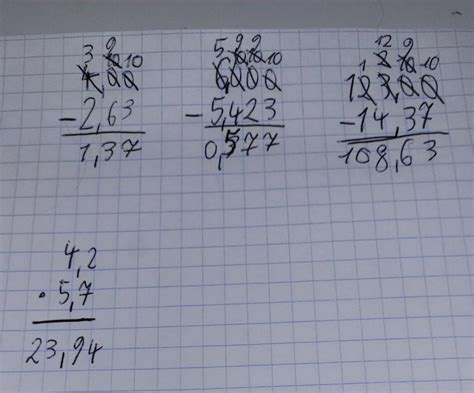 3 9
10 10
4,00
-2,63
1,37
5 9 9
10 10 10
6,000
-5,423
0,577
12 9
1 2 10 10
123,00
-14,37
108,63
4,2
· 5,7
23,94